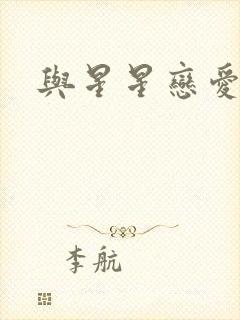 與星星戀愛
李航